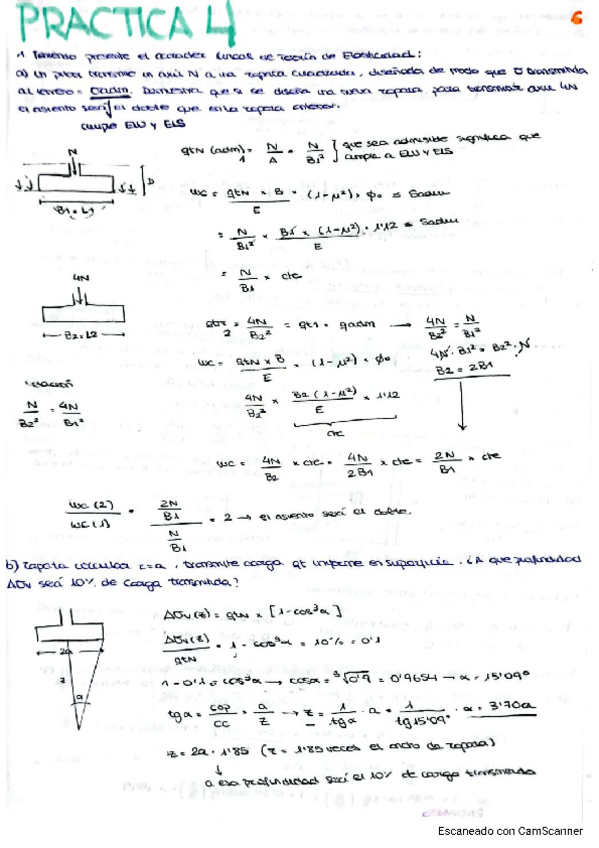 PRACTICA 4
6
1. Teniendo presente el carácter lineal de Teoría de Elasticidad:
a) Un pilar transmite un axil N a una zapata cuadrada, diseñada de modo que σ transmitida
al terreno = σadm. Demostrar que si se diseña una nueva zapata, para transmitir axil 4N
el asiento será el doble que en la zapata anterior.
cumple ELU y ELS
N
D
B1 = L1
qtN1 (adm) = N/A = N/B1² } que sea admisible significa que
cumple a ELU y ELS
wc = qtN × B/E · (1-μ²) · φo ≤ Sadm
= N/B1² × B1 × (1-μ²)/E · 1'12 ≤ Sadm
= N/B1 × cte
4N
B2 = L2
qtr2 = 4N/B2² = qt1 = qadm → 4N/B2² = N/B1²
4N · B1² = B2² · N
B2 = 2B1
wc = qtN × B/E × (1-μ²) × φo
N/B2² = 4N/B1²
4N/B2² × B2 (1-μ²)/E × 1'12
cte
wc = 4N/B2 × cte = 4N/2B1 × cte = 2N/B1 × cte
wc(2)/wc(1) = 2N/B1 / N/B1 = 2 → el asiento será el doble.
b) Zapata circular r=a, transmite carga qt uniforme en superficie. ¿A que profundidad
Δσv será 10% de carga transmitida?
2a
z
α
Δσv(z) = qtN × [1-cos³α]
Δσv(z)/qtN = 1-cos³α = 10% = 0'1
1-0'1 = cos³α → cosα = ³√0'9 = 0'9654 → α = 15'09°
tgα = cop/cc = a/z → z = 1/tgα · a = 1/tg15'09° · a = 3'70a
z = 2a · 1'85 (z = 1'85 veces el ancho de zapata)
a esa profundidad será el 10% de carga transmitida
Escaneado con CamScanner